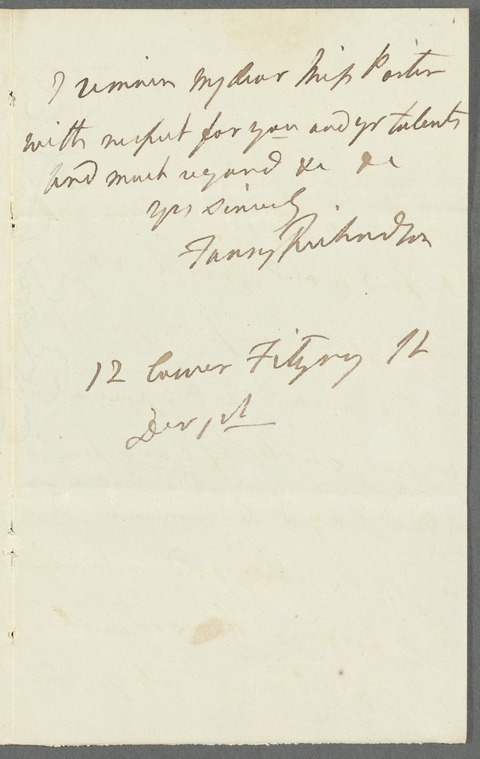 I remain My dear Miss Porter
with respect for you and yr talents
And much regard &c &c
yrs sincerely
Fanny Richardson
12 Lower Fitzroy St
Decr 1st